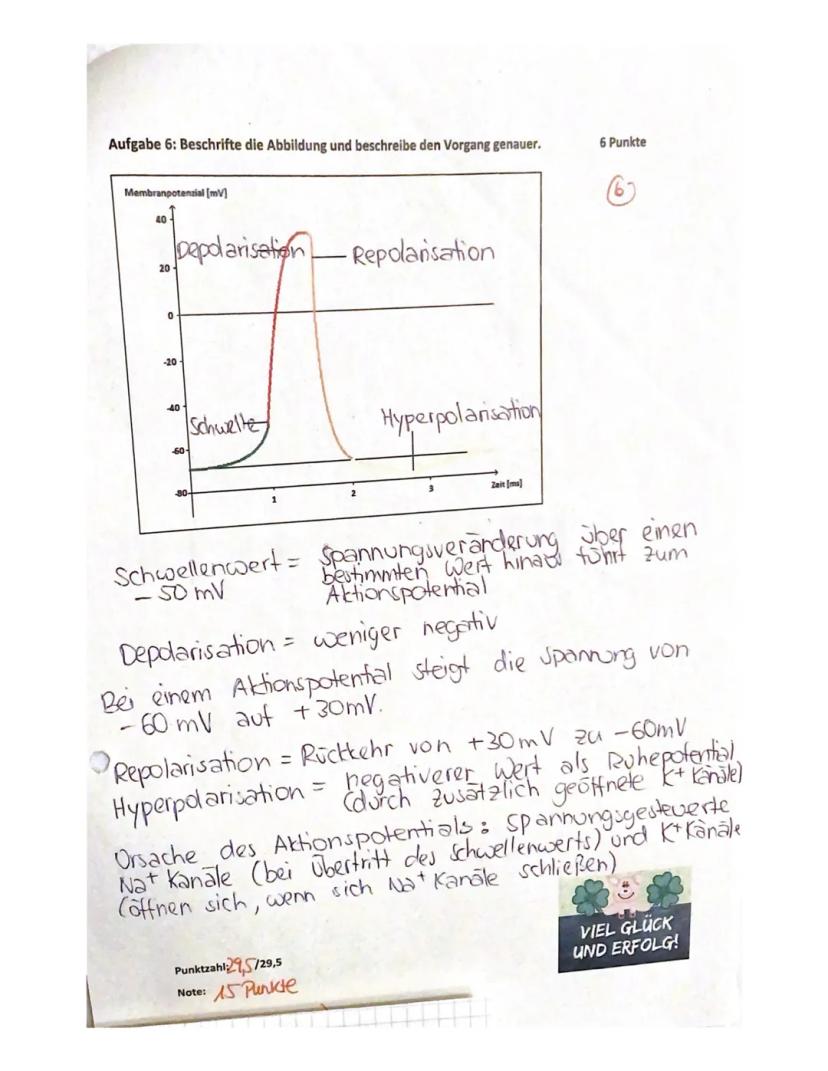 Aufgabe 6: Beschrifte die Abbildung und beschreibe den Vorgang genauer. 6 Punkte
6
Membranpotenzial [mV]
40
Depolarisation Repolarisation
20
0
-20
-40
Schwelle Hyperpolarisation
-60
-80
1 2 3 Zeit [ms]
Schwellenwert = Spannungsveränderung über einen
- 50 mV bestimmten Wert hinaus führt zum
Aktionspotential
Depolarisation = weniger negativ
Bei einem Aktionspotential steigt die Spannung von
- 60 mV auf +30mV.
Repolarisation = Rückkehr von +30mV zu -60mV
Hyperpolarisation = negativerer Wert als Ruhepotential
(durch zusätzlich geöffnete K+ Kanäle)
Ursache des Aktionspotentials: spannungsgesteuerte
Na+ Kanäle (bei Übertritt des Schwellenwerts) und K+ Kanäle
(öffnen sich, wenn sich Na+ Kanäle schließen)
VIEL GLÜCK
UND ERFOLG!
Punktzahl: 29,5/29,5
Note: 15 Punkte